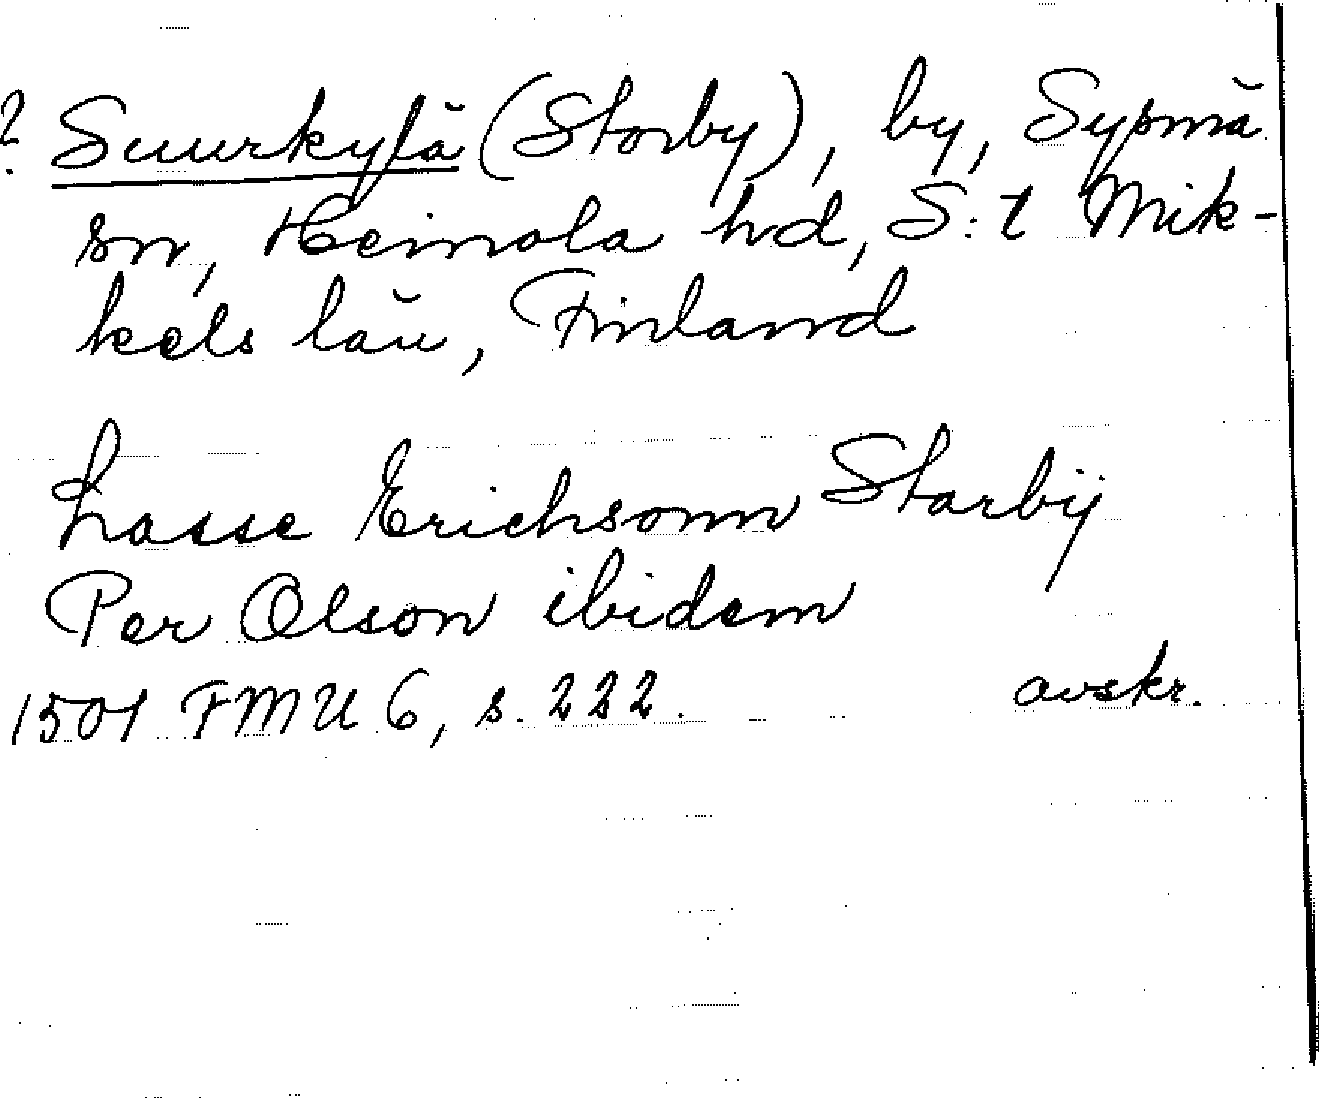 ? Suurkylä (Storby), by, Sysmä
sn, Heinola hd, S:t Mik-
kels län, Finland
Lasse Erichsonn Starbÿ
Per Olson ibidem
1501 FMU 6, s. 222. avskr.